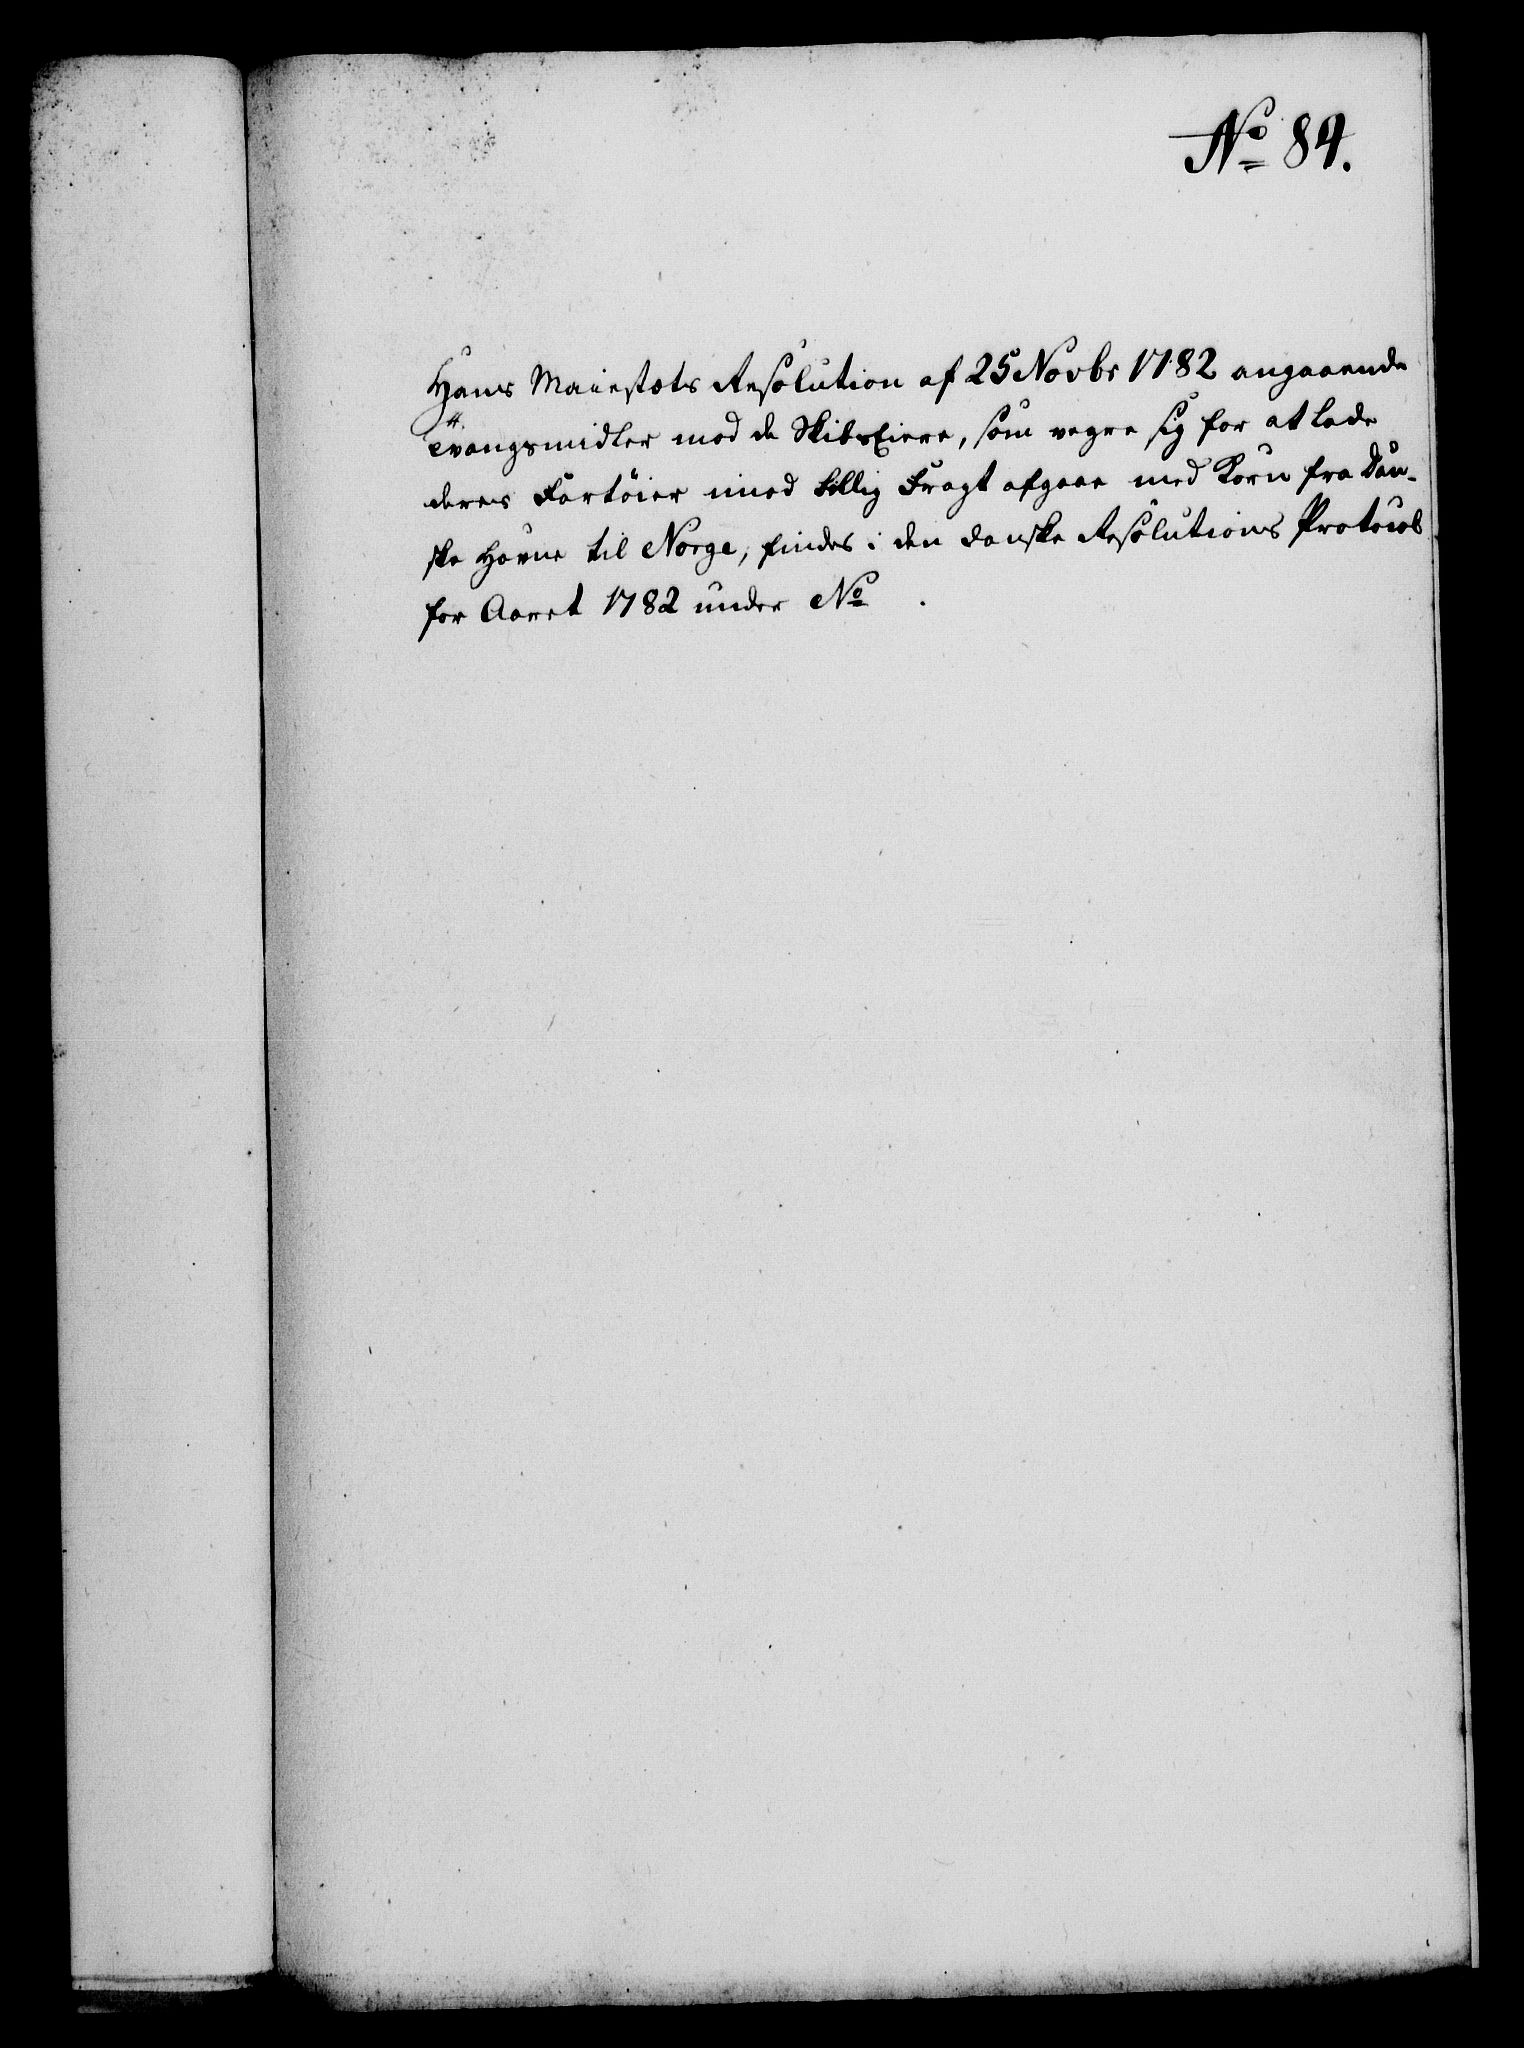 No 84.
Hans Maiestæts Resolution af 25 Novbr 1782 angaaende
Tvangsmidler mod de Skibs Eiere, som vegre sig for at lade
deres Fartöier imod billig Fragt afgaae med Korn fra Dan-
ske Havne til Norge, findes i den danske Resolutions Protocol
for Aaret 1782 under No .